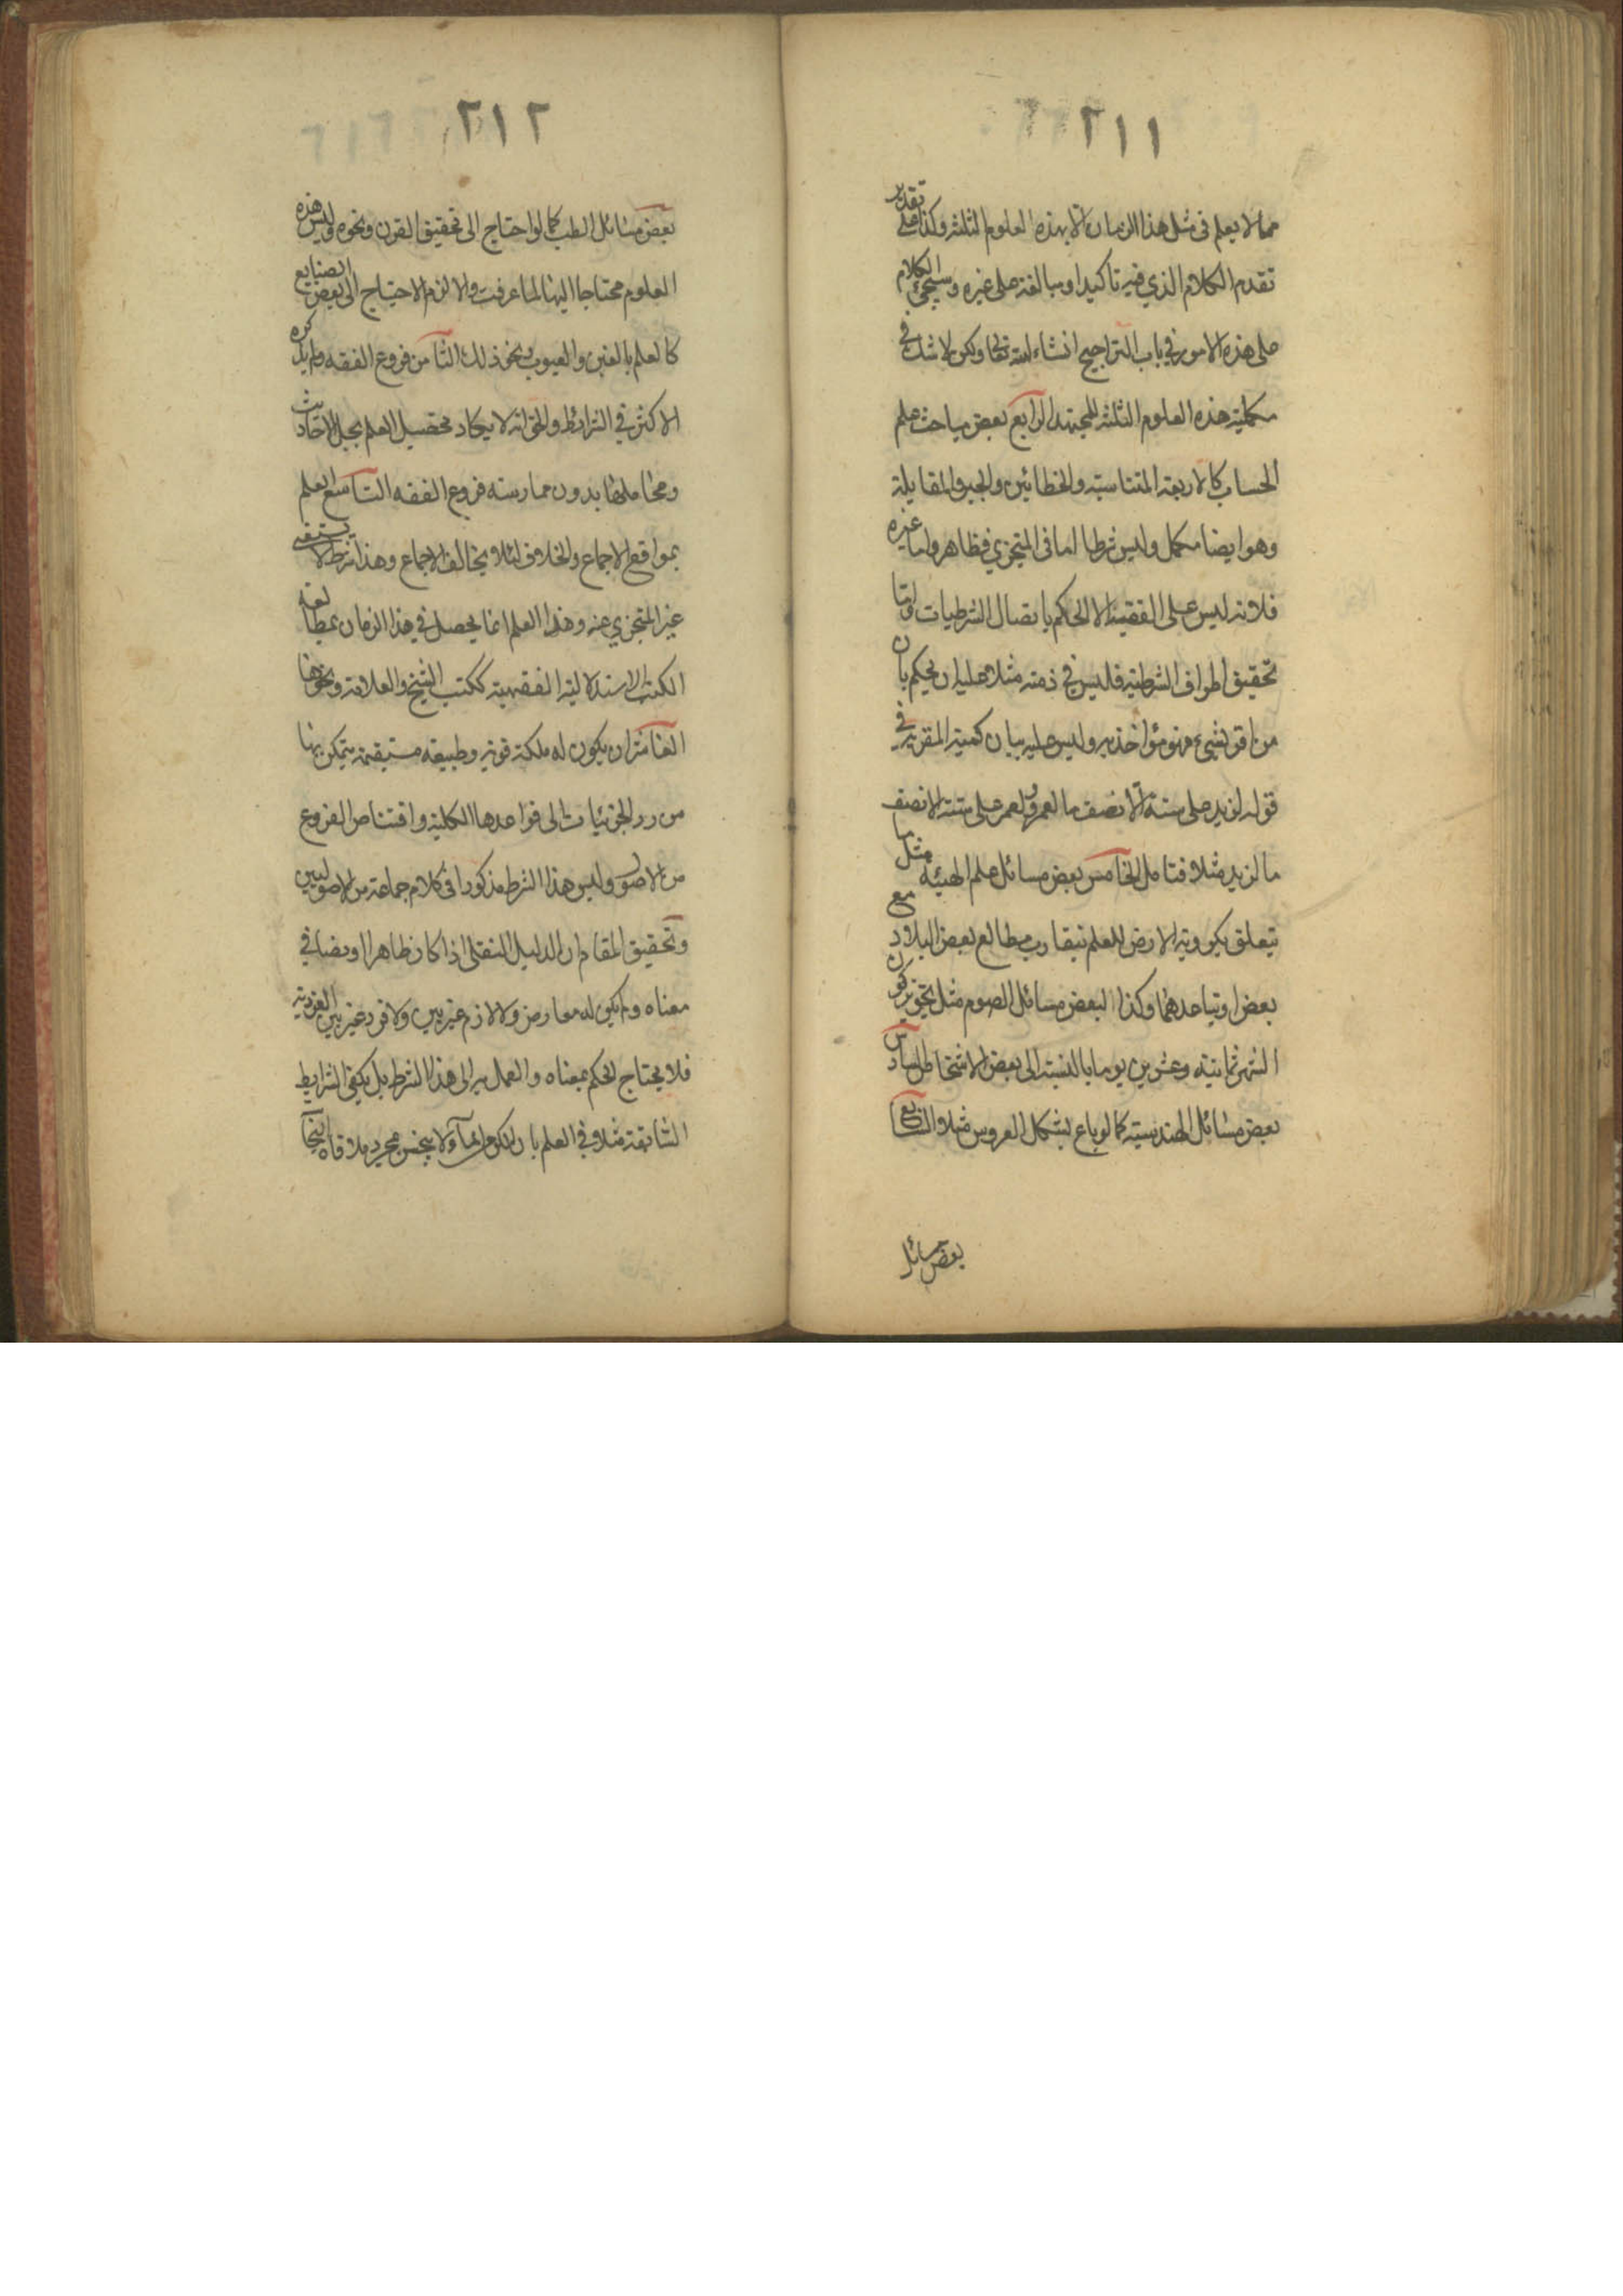 ٢١١
مما لا يعلم فى مثل هذا الزمان الا بهذه العلوم الثلثه وكذا تقدير على
تقدم الكلام الذي فيه تاكيد او مبالغة على غيره وسيجئ الكلام
على هذه الامور في باب التراجيح انشاء الله تعالى ولكن لا شك في
مكملية هذه العلوم الثلثه للمجتهد الرابع بعض مباحث علم
الحساب كالاربعة المتناسبة والخطائين والجبر والمقابلة
وهو ايضا مكمل وليس شرطا اما فى المتجزي فظاهر واما غيره
فلانه ليس على الفقيه الا الحكم باتصال الشرطيات واما
تحقيق اطراف الشرطية فليس في ذمته مثلا عليه ان يحكم بان
من اقر بشيء فهو مؤاخذ به وليس عليه بيان كمية المقر به في
قوله لزيد على ستة الا نصف ما لعمرو ولعمرو على ستة الا نصف
ما لزيد مثلا فتامل الخامس بعض مسائل علم الهيئة مثل ما
يتعلق بكروية الارض للعلم بتقارب مطالع بعض البلاد مع
بعض او تباعدهما وكذا لبعض مسائل الصوم مثل تجويز كون
الشهر ثمانية وعشرين يوما بالنسبة الى بعض الاشخاص السادس
بعض مسائل الهندسية كما لو باع بشكل العروس مثلا السابع
بعض مسائل
٢١٢
بعض مسائل الطب كما لو احتاج الى تحقيق القرن ونحوه وليس هذه
العلوم محتاجا اليها لما عرفت والا لزم الاحتياج الى بعض الصنايع
كالعلم بالغبن والعيوب ونحو ذلك الثامن فروع الفقه ولم يذكره
الاكثر في الشرائط والحق انه لا يكاد يحصل العلم بحل الاحاديث
ومحاملها بدون ممارسة فروع الفقه التاسع العلم
بمواقع الاجماع والخلاف لئلا يخالف الاجماع وهذا شرط لا يستغنى
غير المتجزي عنه وهذا العلم انما يحصل في هذا الزمان بمطالعة
الكتب الاستدلالية الفقهية ككتب الشيخ والعلامة ونحوها
العاشر ان يكون له ملكة قوية وطبيعة مستقيمة يتمكن بها
من رد الجزئيات الى قواعدها الكلية واقتناص الفروع
من الاصول وليس هذا الشرط مذكورا فى كلام جماعة من الاصوليين
وتحقيق المقام ان الدليل النقلى اذا كان ظاهرا او نصا في
معناه ولم يكن له معارض ولا لازم غير بين ولا فرد غير بين الفردية
فلا يحتاج الحكم بمعناه والعمل به الى هذا الشرط بل يكفى الشرايط
السابقة مثلا في العلم بان الكر من الماء لا ينجس بمجرد ملاقاة النجا